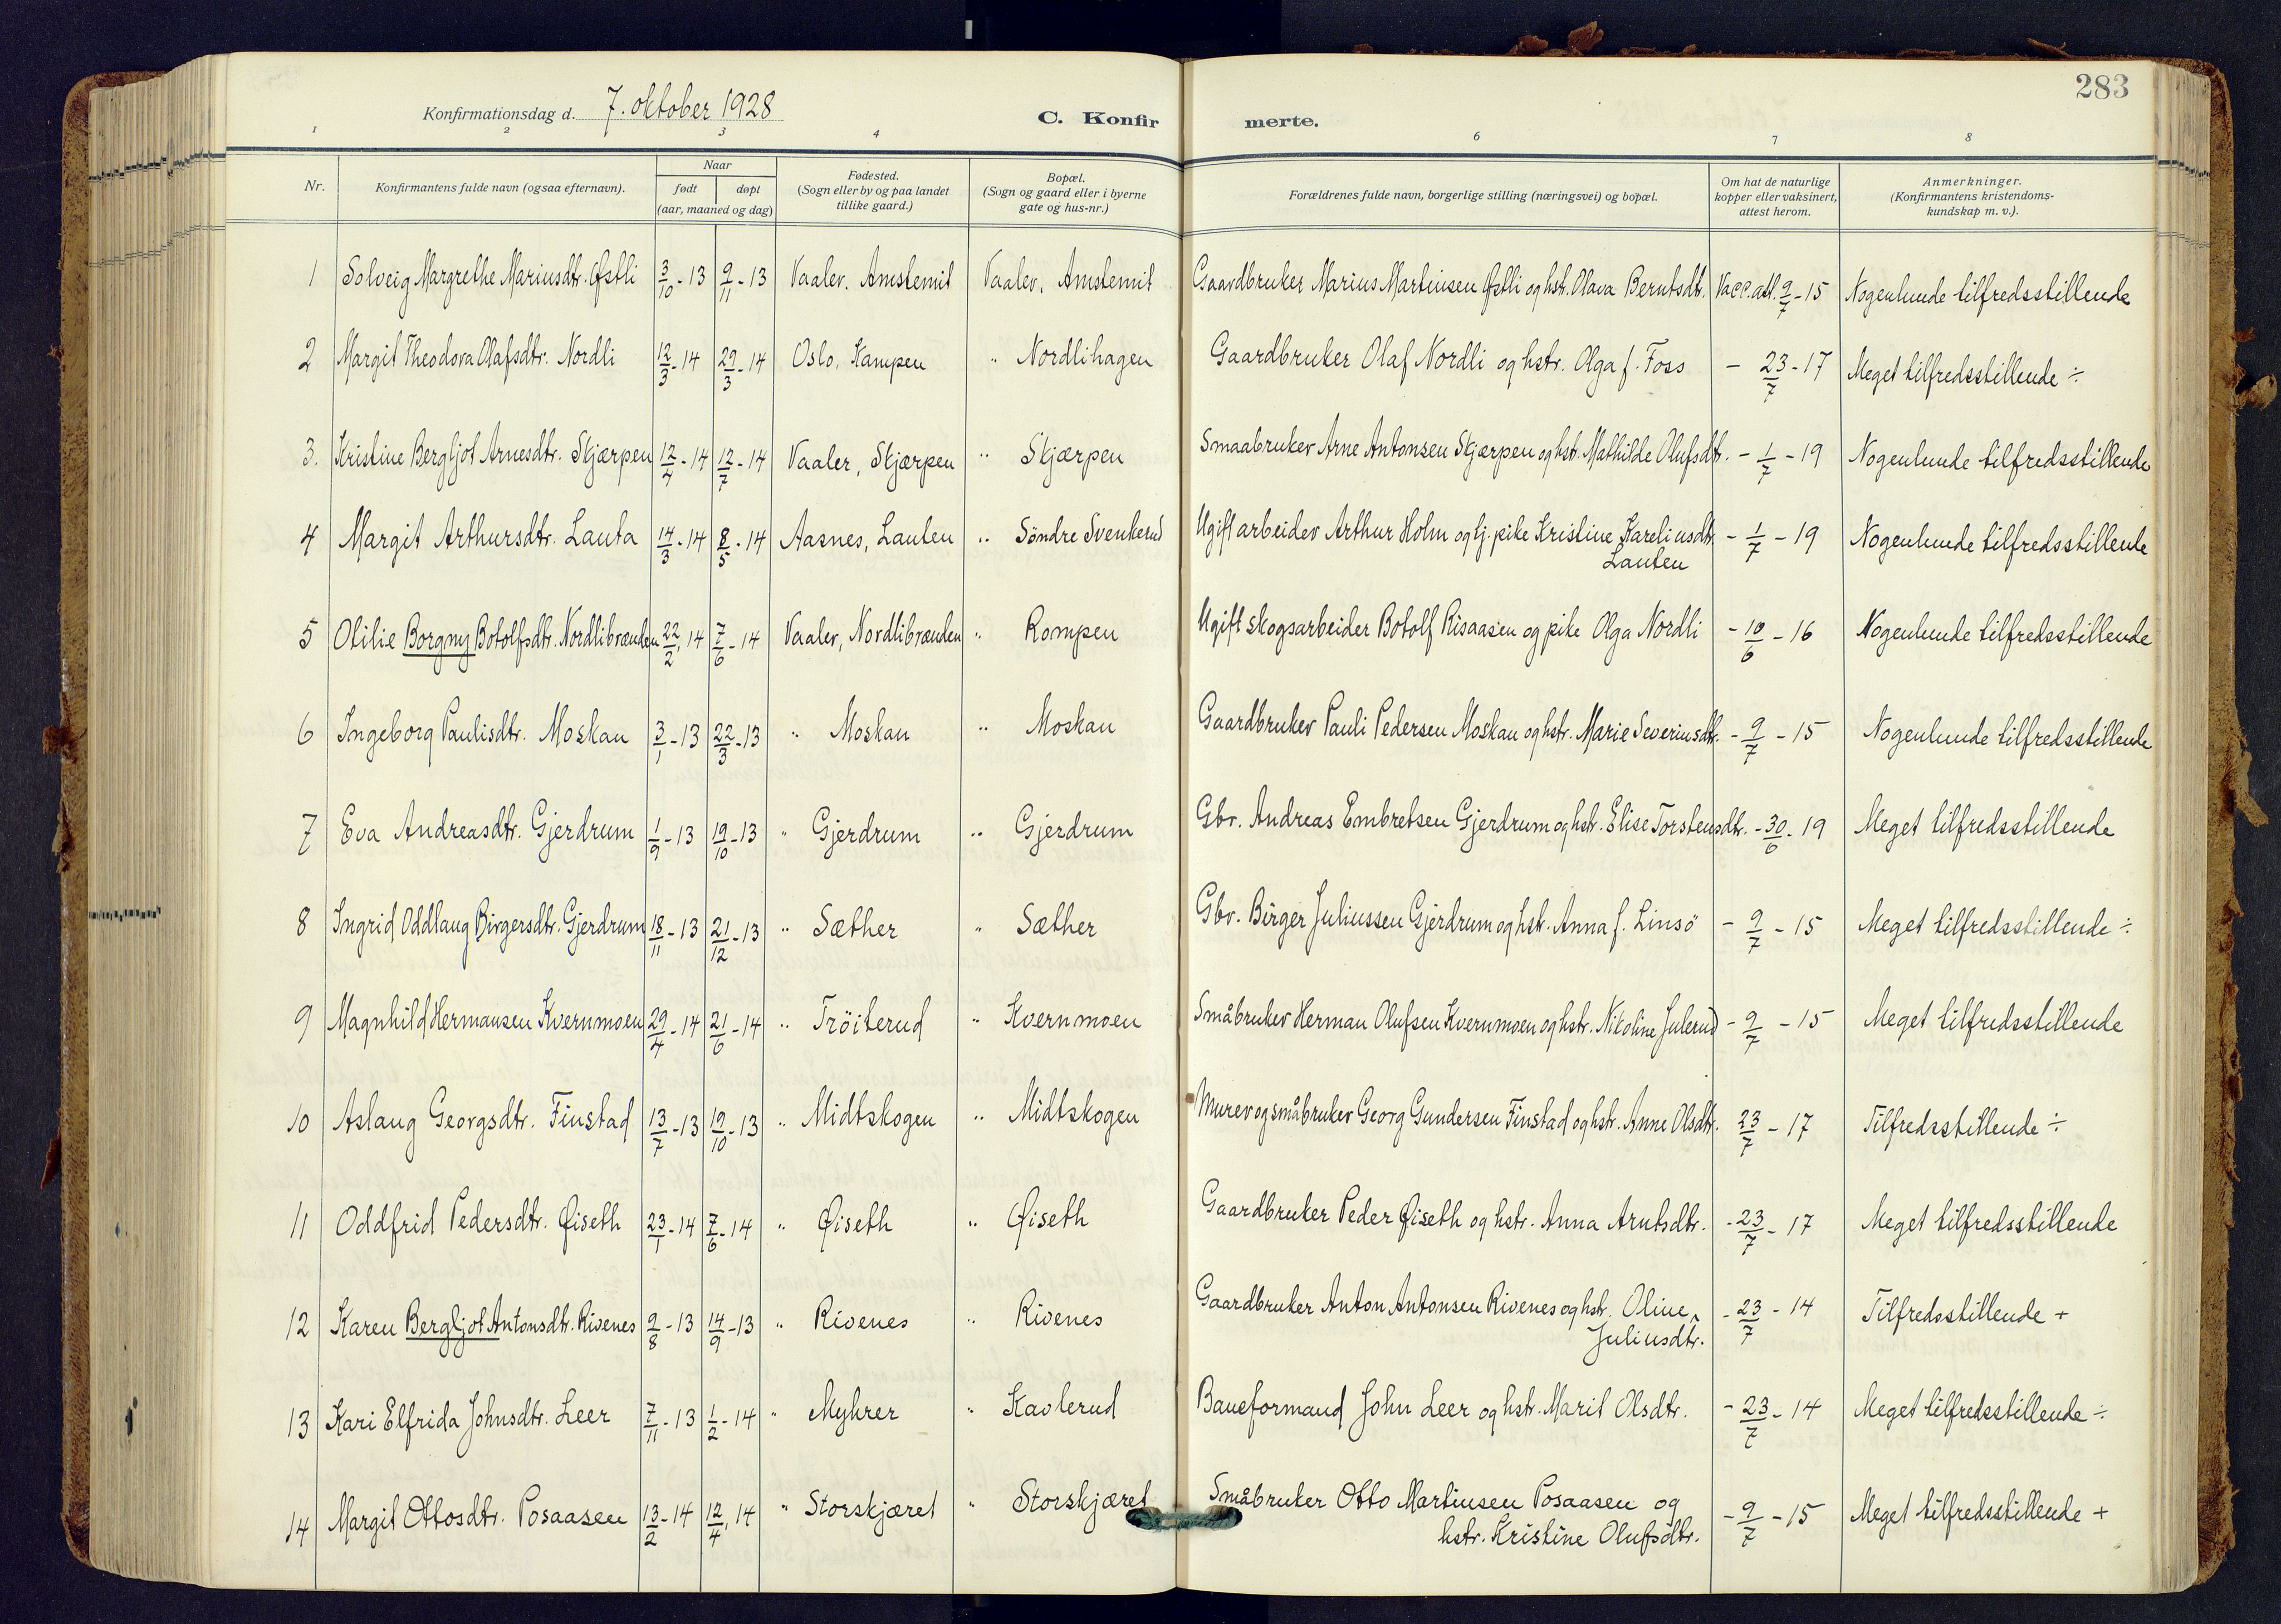 283
Konfirmationsdag d. 7. oktober 1928
C. Konfir merte.
1 2 3 4 6 7 8
Nr.
Konfirmantens fulde navn (ogsaa efternavn).
Naar
født døpt
(aar, maaned og dag)
Fødested.
(Sogn eller by og paa landet
tillike gaard.)
Bopæl.
(Sogn og gaard eller i byerne
gate og hus-nr.)
Forældrenes fulde navn, borgerlige stilling (næringsvei) og bopæl.
Om hat de naturlige
kopper eller vaksinert,
attest herom.
Anmerkninger.
(Konfirmantens kristendoms-
kundskap m. v.).
1 Solveig Margrethe Mariusdtr. Østli 3/10-13 9/11-13 Vaaler. Amstemit Vaaler, Amstemit Gaardbruker Marius Martinsen Østli og hstr. Olava Berntsdt. Vacc.att. 9/7-15 Nogenlunde tilfredsstillende
2 Margit Theodora Olafsdtr. Nordli 12/3-14 29/3-14 Oslo, Kampen " Nordlihagen Gaardbruker Olaf Nordli og hstr. Olga f. Foss - 23/7-17 Meget tilfredsstillende ÷
3. Kristine Bergljot Arnesdtr. Skjærpen 12/4-14 12/7-14 Vaaler, Skjærpen " Skjærpen Smaabruker Arne Antonsen Skjærpen og hstr. Mathilde Olufsdtr. - 1/7-19 Nogenlunde tilfredsstillende
4 Margit Arthursdtr. Lauta 14/3-14 8/5-14 Aasnes, Lauten " Söndre Svenkerud Ugift arbeider Arthur Holm og tj. pike Kristine Kareliusdtr. - 1/7-19 Nogenlunde tilfredsstillende
Lauten
5 Otilie Borgny Botolfsdtr. Nordlibrænden 22/2,14 7/6-14 Vaaler, Nordlibrænden " Rompen Ugift skogsarbeider Botolf Risaasen og pike Olga Nordli - 10/6-16 Nogenlunde tilfredsstillende
6 Ingeborg Paulisdtr. Moskau 3/1-13 22/3-13 " Moskau " Moskau Gaardbruker Pauli Pedersen Moskau og hstr. Marie Severinsdtr. - 9/7-15 Nogenlunde tilfredsstillende
7 Eva Andreasdtr. Gjerdrum 1/9-13 19/10-13 " Gjerdrum " Gjerdrum Gbr. Andreas Embretsen Gjerdrum og hstr. Elise Torstensdtr. - 30/6-19 Meget tilfredsstillende
8 Ingrid Oddlaug Birgersdtr. Gjerdrum 18/11-13 21/12-13 " Sæther " Sæther Gbr. Birger Juliussen Gjerdrum og hstr. Anna f. Linsö - 9/7-15 Meget tilfredsstillende ÷
9 Magnhild Hermansen Kvernmoen 29/4-14 21/6-14 " Tröiterud " Kvernmoen Småbruker Herman Olufsen Kvernmoen og hstr. Nikoline Julerud - 9/7-15 Meget tilfredsstillende
10 Aslaug Georgsdtr. Finstad 13/7-13 19/10-13 " Midtskogen " Midtskogen Murer og småbruker Georg Gundersen Finstad og hstr. Anne Olsdtr. 23/7-17 Tilfredsstillende ÷
11 Oddfrid Pedersdtr. Øiseth 23/1-14 7/6-14 " Øiseth " Øiseth Gaardbruker Peder Øiseth og hstr. Anna Arntsdtr. - 23/7-17 Meget tilfredsstillende
12 Karen Bergljot Antonsdtr. Rivenes 9/8-13 14/9-13 " Rivenes " Rivenes Gaardbruker Anton Antonsen Rivenes og hstr. Oline - 23/7-14 Tilfredsstillende +
Juliusdtr.
13 Kari Elfrida Johnsdtr. Leer 7/11-13 1/2-14 " Myhrer " Kavlerud Baneformand John Leer og hstr. Marit Olsdtr. - 23/7-14 Meget tilfredsstillende ÷
14 Margit Ottosdtr. Posaasen 13/2-14 12/4,14 " Storskjæret " Storskjæret Småbruker Otto Martinsen Posaasen og - 9/7-15 Meget tilfredsstillende +
hstr. Kristine Olufsdtr.